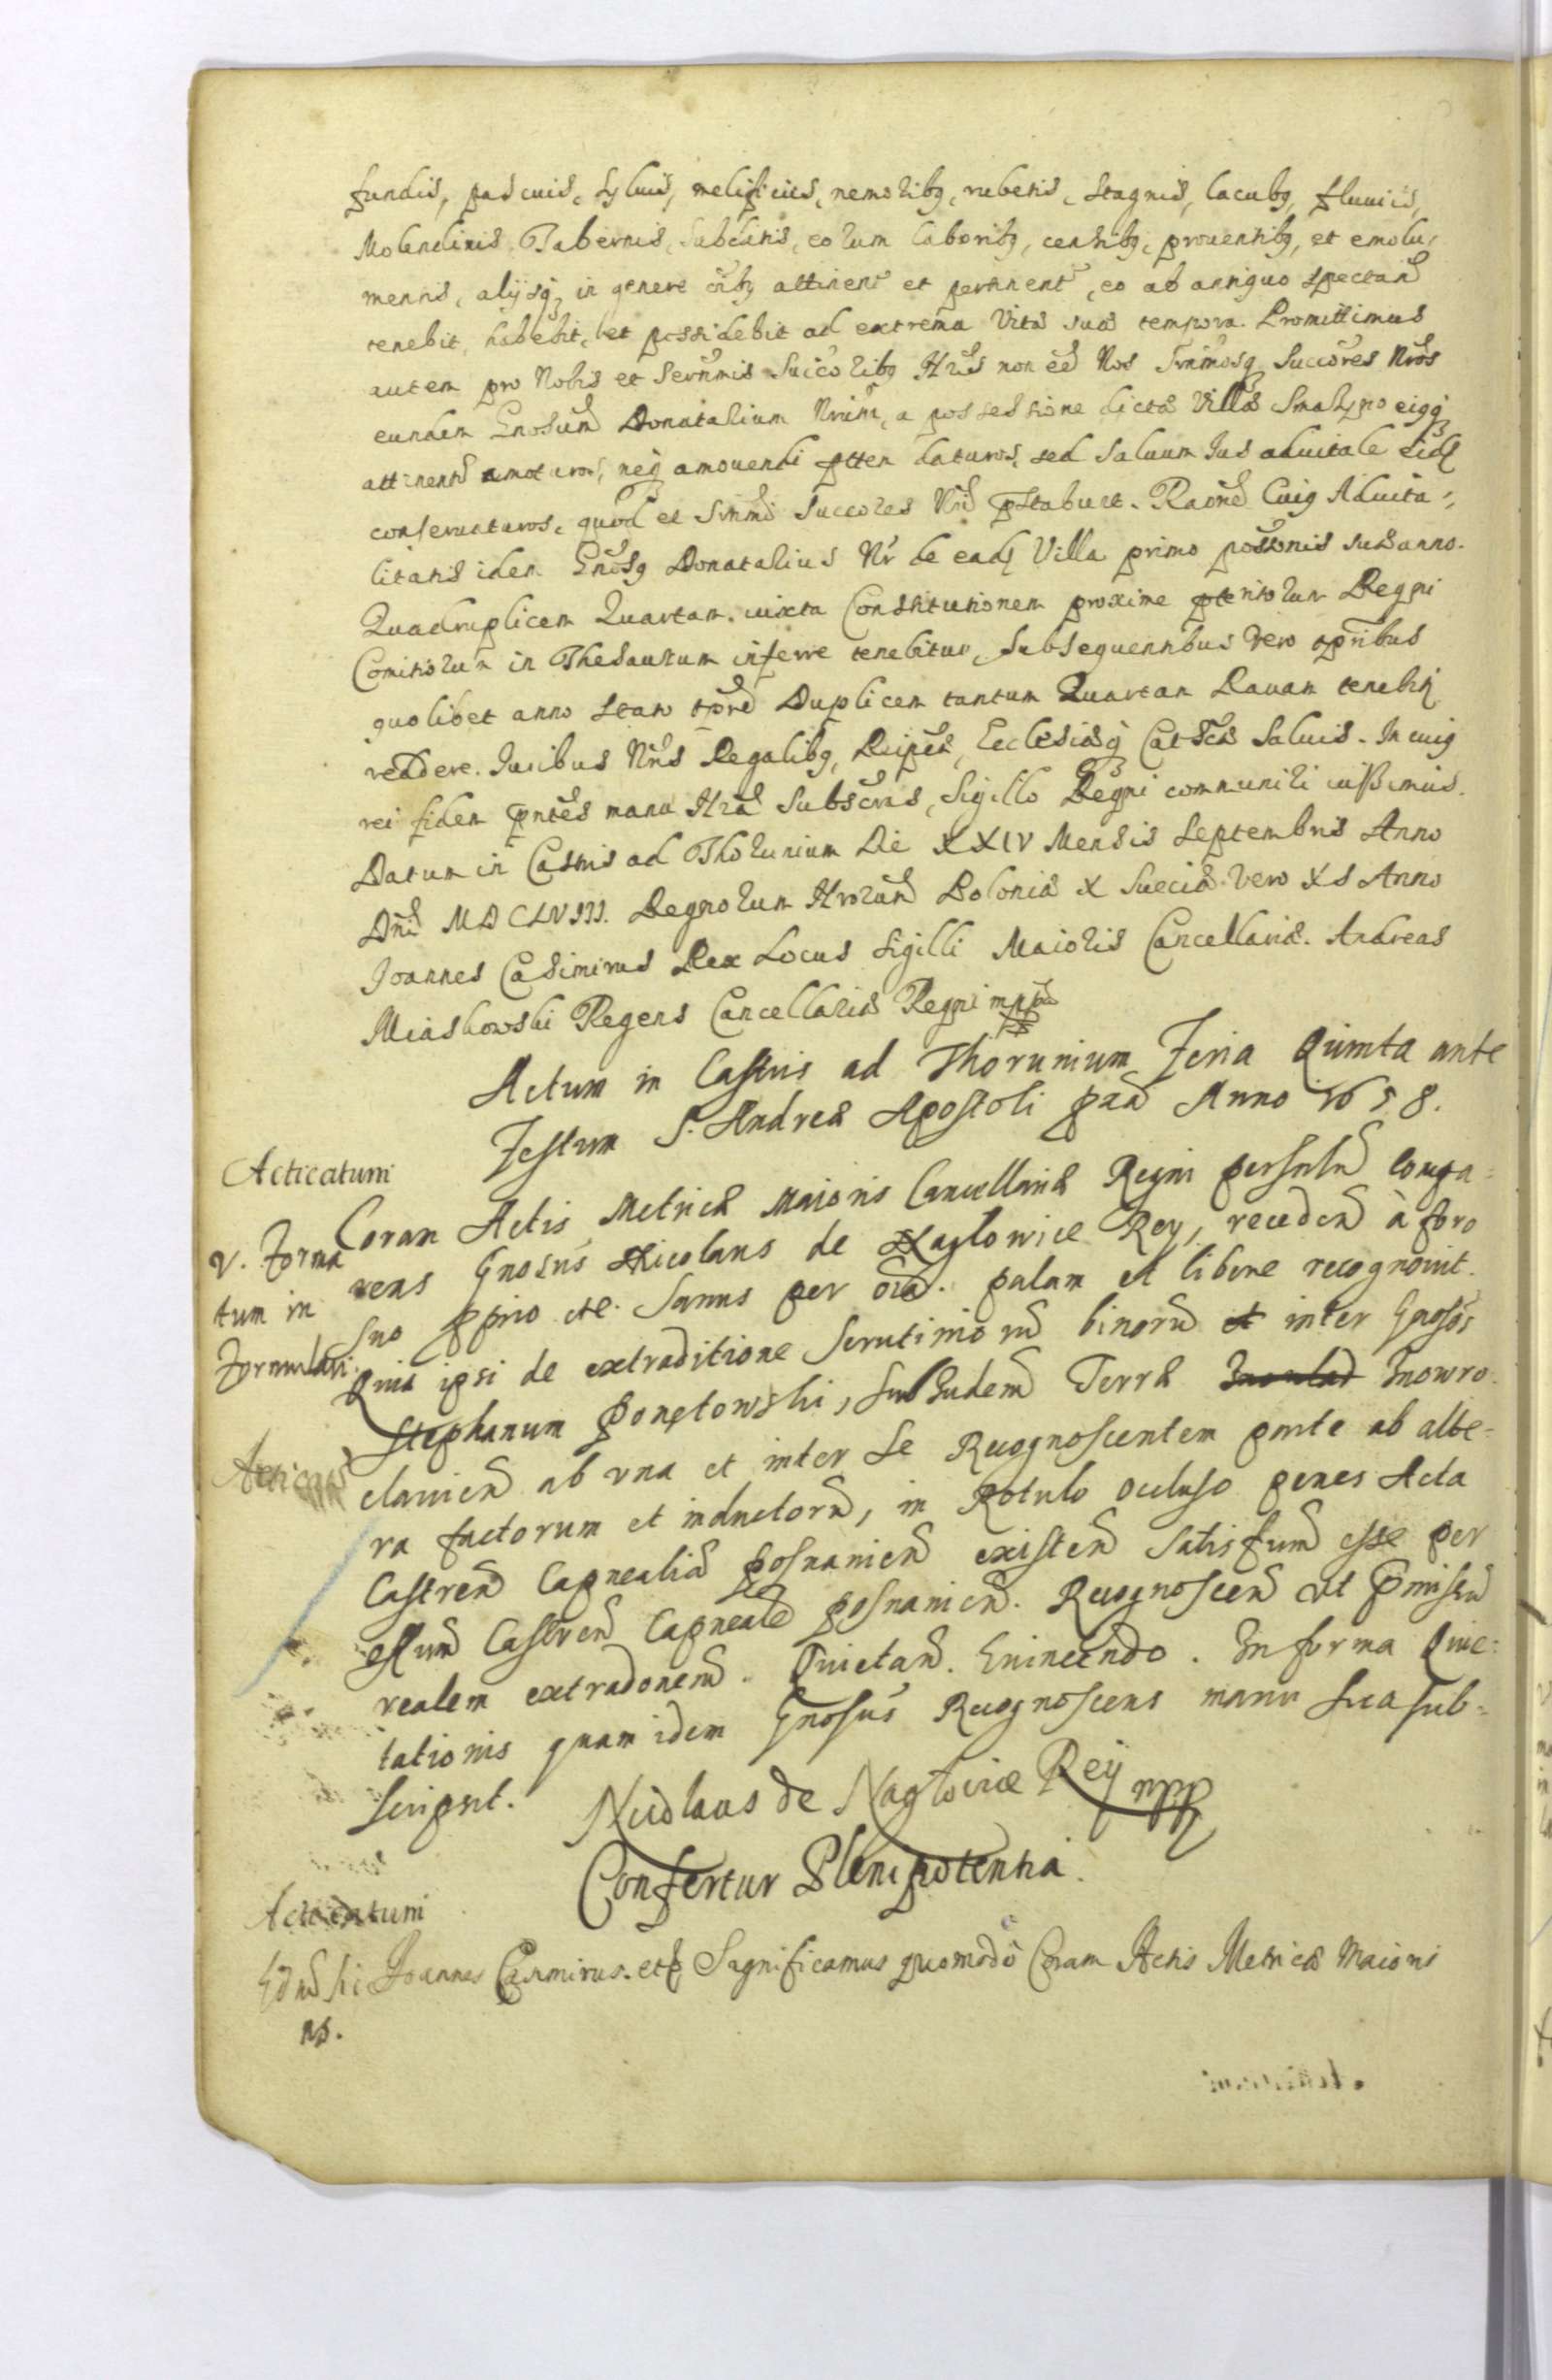 fundis, pascuis, sylvis, melificiis, nemoribq, rubetis, stagnis, lacubq, fluviis,
Molendinis, Tabernis, Subditis, eorum laboribq, censibq, proventibq, et emolu-
mentis, alijsq, in genere oībq attinent et pertinent, eo ab antiquo spectan
tenebit, habebit, et possidebit ad extrema Vitæ suæ tempora. Promittimus
autem pro Nobis et Serenmis Succoribq Nris non eē Nos Srnmosq Succores Nros
eundem Gnosum Donatarium Nrum, a possessione dictæ Villæ eiqq
attinen amoturos, neq amovendi ptten daturos, sed salvum Ius advitale eidq
conservaturos, quod et Srnmi Succores Nri pstabunt. Raone Cuiq Advita-
litatis idem Gnosq Donatarius Nr de eadq Villa primo possonis suæ anno.
Quadruplicem Quartam, iuxta Constitutionem proxime pteritorum Regni
Comitiorum in Thesaurum inferre tenebitur, Subsequentibus vero tpribus
quolibet anno stato tpre Duplicem tantum Quartam Ravam tenebitq
reddere. Iuribus Nris Regalibq, Reipcæ, Ecclesiæq Catcæ Salvis. In cuiq
rei fidem pntes manu Nra Subscras, Sigillo Regni communiri iussimus.
Datum in Castris ad Thorunium Die XXIV Mensis Septembris Anno
Dni MDCLVIII. Regnorum Nrorum Poloniæ X Sueciæ vero XI Anno
Joannes Casimirus Rex Locus Sigilli Maioris Cancellariæ. Andreas
Miaskowski Regens Cancellariæ Regni mpp
Actum in Castris ad Thorunium Feria Quinta ante
Festum S. Andreæ Apostoli pxa Anno 1658.
Acticatum
Coram Actis Metricæ Maioris Cancellariæ Regni persnlr compa-
v. Forma
tum in
Formulari
rens Gnosus Nicolaus de Naglowice Rey, receden à foro
suo pprio ete. Sanus per oia. palam et libere recognovit.
Quia ipsi de extraditione Scrutiniorū binorū et inter Gnosos
Stephanum Ponetowski, Sub Iudem Terræ Inowro-
Acticatū
claviēn ab una et inter se Recognoscentem parte ab alte-
ra factorum et inductorū, in Rotulo occluso penes Acta
Castren Capnealia Posnanien existen Satisfum esse per
offium Castren Capneale Posnanien. Recognoscen et pmissū
realem extradonem. Quietan. Evincendo. In forma Quie-
tationis quam idem Gnosus Recognoscens manu sua sub-
scripsit. Nicolaus de Nagłowice Reÿ mpp
Confertur Plenipotentia.
Acticatum
Joannes Casimirus. etc Significamus quomodo Coram Actis Metricæ Maioris